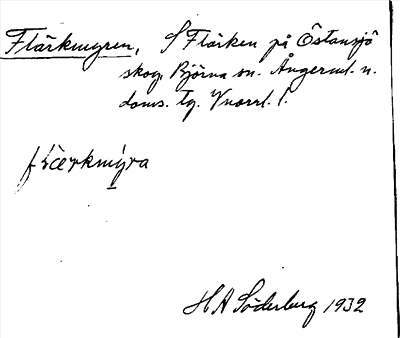 Flärkmyren, S Flärken på Östansjö
skog, Björna sn. Ångerml. n.
doms. tg. Vnorrl. l.
flærkmyra
H A Söderberg 1932